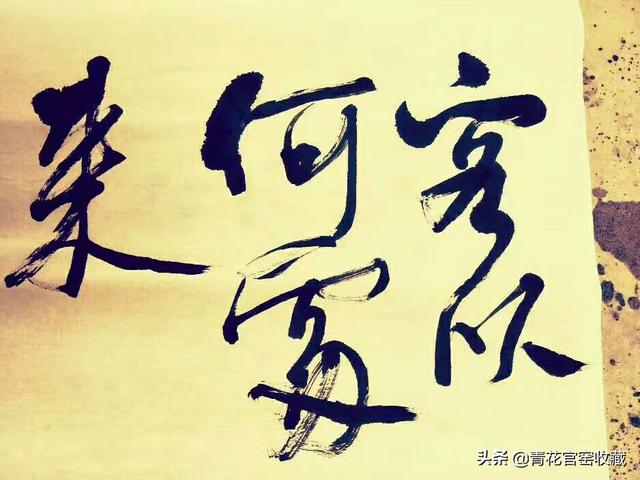 客从
何處
来
头条 @青花官窑收藏